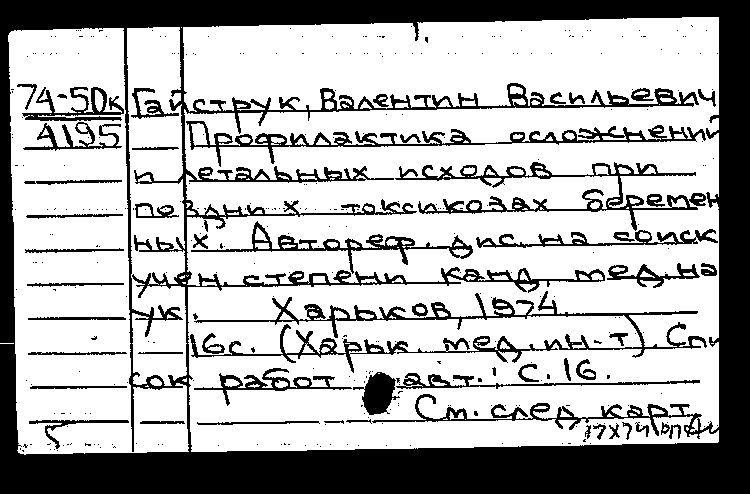 1.
74-50к Гайструк, Валентин Васильевич
4195 Профилактика осложнений
и летальных исходов при
поздних токсикозах беремен
ных. Автореф. дис. на соиск
учен. степени канд. мед. на
ук. Харьков, 1974.
16с. (Харьк. мед. ин-т). Спи
сок работ авт.: с. 16.
См. след. карт.
5